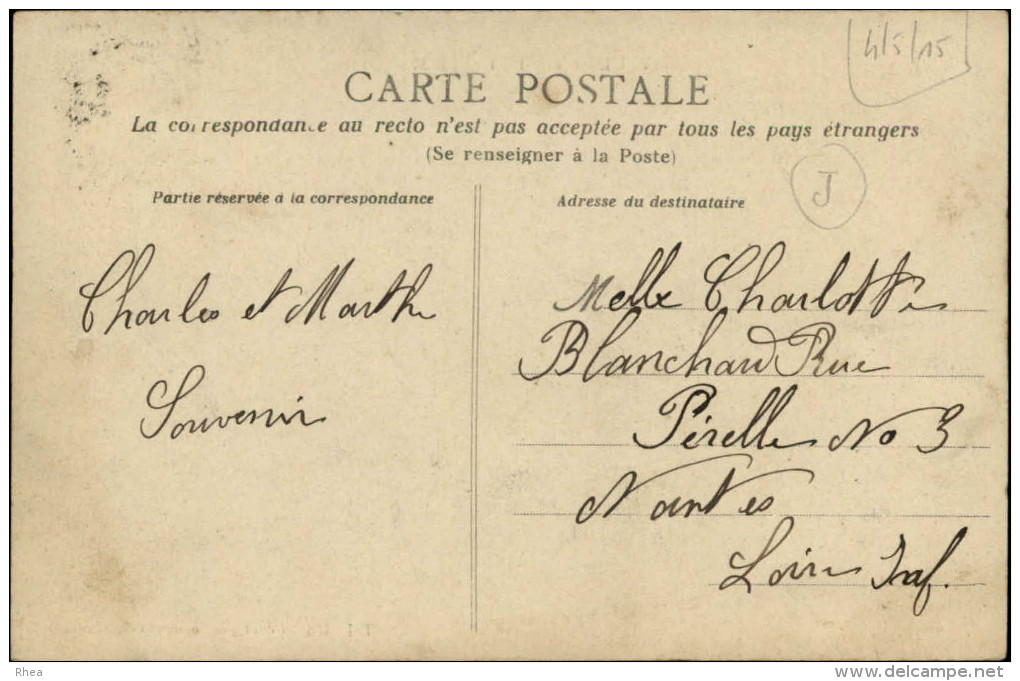 4/5/15
CARTE POSTALE
La correspondance au recto n'est pas acceptée par tous les pays étrangers
(Se renseigner à la Poste)
J
Partie réservée à la correspondance
Adresse du destinataire
Charles et Marthe
Souvenir
Melle Charlotte
Blanchard Rue
Pérelle No 3
Nantes
Loire Inf.
Rhea
www.delcampe.net